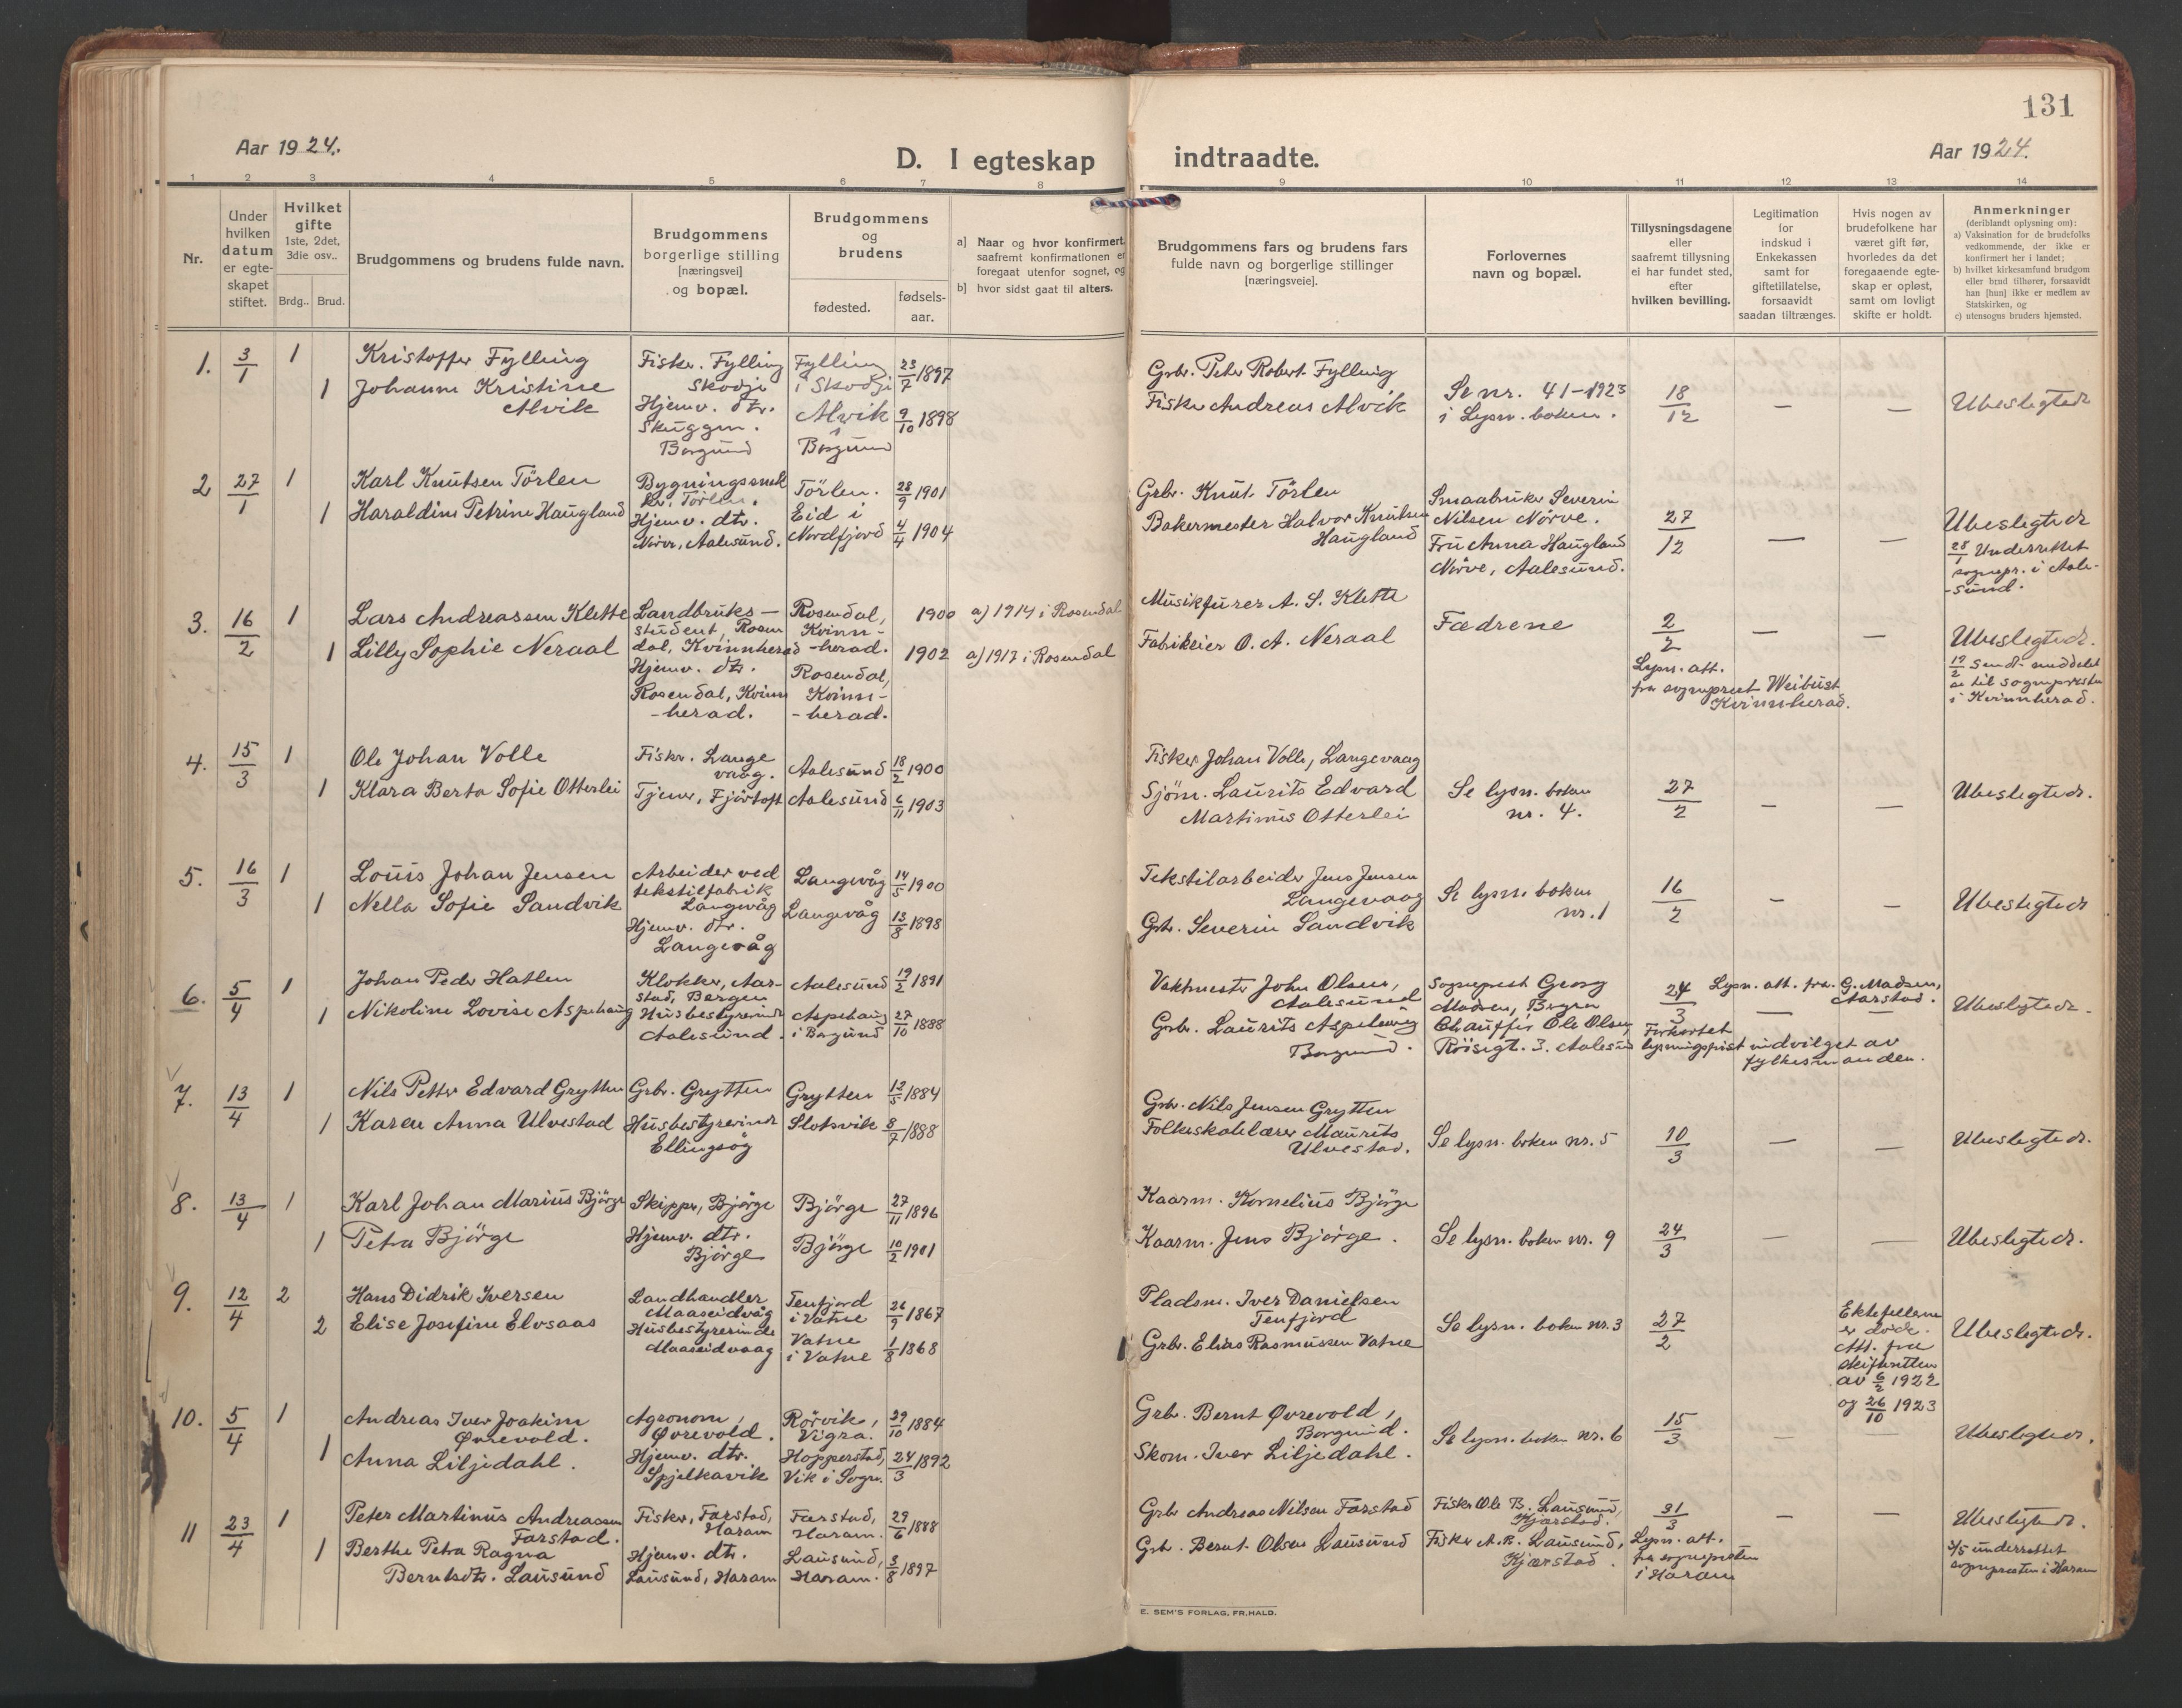 131
Aar 1924.
D. I egteskap indtraadte.
Aar 1924.
1 2 3 4 5 6 7 8 9 10 11 12 13 14
Nr.
Under hvilken datum er egte-skapet stiftet.
Hvilket gifte 1ste, 2det, 3die osv..
Brdg.. Brud.
Brudgommens og brudens fulde navn.
Brudgommens borgerlige stilling [næringsvei] og bopæl.
Brudgommens og brudens
fødested.
fødsels-aar.
a] Naar og hvor konfirmert, saafremt konfirmationen er foregaat utenfor sognet, og
b] hvor sidst gaat til alters.
Brudgommens fars og brudens fars fulde navn og borgerlige stillinger [næringsveie].
Forlovernes navn og bopæl.
Tillysningsdagene eller saafremt tillysning ei har fundet sted, efter hvilken bevilling.
Legitimation for indskud i Enkekassen samt for giftetillatelse, forsaavidt saadan tiltrænges.
Hvis nogen av brudefolkene har været gift før, hvorledes da det foregaaende egte-skap er opløst, samt om lovligt skifte er holdt.
Anmerkninger (deriblandt oplysning om):
a) Vaksination for de brudefolks vedkommende, der ikke er konfirmert her i landet;
b) hvilket kirkesamfund brudgom eller brud tilhører, forsaavidt han [hun] ikke er medlem av Statskirken, og
c) utensogns bruders hjemsted.
1. 3/1 1 Kristoffer Fylling Fisker. Fylling Skodje Fylling i Skodje 23/7 1897 Grbr. Peter Robert Fylling Se nr. 41-1923 i Lysn. boken. 18/12 — — Ubeslegtede
1 Johanne Kristine Alvik Hjemv. dtr. Skuggen. Borgund Alvik i Borgund 9/10 1898 Fisker Andreas Alvik
2 27/1 1 Karl Knutsen Törlen Törlen. Törlen. 28/9 1901 Grbr. Knut Törlen Smaabruker Severin Nilsen Nörve. 27/12 — — Ubeslegtede
1 Haraldine Petrine Haugland Hjemv. dtr. Nörve, Aalesund. Eid i Nordfjord 4/4 1904 Bakermester Halvor Knutsen Haugland Fru Anna Haugland Nörve, Aalesund. 28/1 Underrettet sognepr. i Aale-sund.
3. 16/2 1 Lars Andreassen Klette Landbruks-student, Rosendal, Kvinnherad Rosendal, Kvinn-herad. 1900 a) 1914 i Rosendal Musikfurer A. S. Klette Fædrene 2/2 — — Ubeslegtede.
1 Lilly Sophie Neraal Hjemv. dtr. Rosendal, Kvinn-herad. Rosendal, Kvinn-herad. 1902 a) 1917 i Rosendal Fabrikeier O. A. Neraal Lysn. att. fra sogneprest Weibust Kvinnherad. 17/2 Sendt meddelelse til sognepresten i Kvinnherad.
4. 15/3 1 Ole Johan Volle Fisker. Langevaag. Aalesund 18/2 1900 Fisker Johan Volle, Langevaag Se lysn. boken nr. 4. 27/2 — — Ubeslegtede.
1 Klara Berta Sofie Otterlei Tjener, Fjörtoft Aalesund 6/11 1903 Sjöm. Laurits Edvard Martinus Otterlei
5. 16/3 1 Louis Johan Jensen Arbeider ved tekstilfabrik Langevåg Langevåg 14/5 1900 Tekstilarbeider Jens Jensen Langevaag Se lysn. boken nr. 1 16/2 — — Ubeslegtede
1 Nella Sofie Sandvik Hjemv. dtr. Langevåg Langevåg 13/8 1898 Grbr. Severin Sandvik
6. 5/4 1 Johan Peder Hatlen Klokker, Aarstad, Bergen Aalesund 19/2 1891 Vaktmester John Olsen, Aalesund Sogneprest Georg Madsen, Bergen 24/3 Lysn. att. fra G. Madsen, Aarstad. — — Ubeslegtede.
1 Nikoline Lovise Aspehaug Husbestyrerinde Aalesund. Aspehaug i Borgund 27/10 1888 Grbr. Laurits Aspehaug Borgund. Chaufför Ole Olsen, Röisegt. 3. Aalesund Forkortet lysningsfrist indvilget av fylkesmanden.
7. 13/4 1 Nils Petter Edvard Grytten Grbr. Grytten Grytten 12/5 1884 Grbr. Nils Jensen Grytten Se lysn. boken nr. 5 10/3 — — Ubeslegtede.
1 Karen Anna Ulvestad Husbestyrerinde Ellingsöy Slotsvik 8/7 1888 Folkeskolelærer Maurits Ulvestad.
8. 13/4 1 Karl Johan Marius Björge Skipper, Björge Björge 27/11 1896 Kaarm. Kornelius Björge Se lysn. boken nr. 9 24/3 — — Ubeslegtede.
1 Petra Björge Hjemv. dtr. Björge Björge 10/2 1901 Kaarm. Jens Björge.
9. 12/4 2 Hans Didrik Iversen Landhandler Maaseidvåg Tenfjord i Vatne 26/9 1867 Pladsm. Iver Danielsen Tenfjord Se lysn. boken nr. 3 27/2 Ektefellene er döde. Att. fra skifteretten av 6/2 1922 og 26/10 1923 Ubeslegtede.
2 Elise Josefine Elvsaas Husbestyrerinde Maaseidvaag Vatne i Vatne 1/8 1868 Grbr. Elias Rasmussen Vatne
10. 5/4 1 Andreas Iver Joakim Øvrevold. Agronom, Øvrevold. Rörvik, Vigra. 29/10 1884 Grbr. Bernt Øvrevold, Borgund. Se lysn. boken nr. 6 15/3 — — Ubeslegtede.
1 Anna Liljedahl. Hjemv. dtr. Spjelkavik Hopperstad, Vik i Sogn. 24/3 1892 Skom. Iver Liljedahl.
11 23/4 1 Peter Martinus Andreassen Farstad. Fisker, Farstad, Haram Farstad, Haram. 29/6 1888 Grbr. Andreas Nilsen Farstad Fisker Ole B. Lausund, Kjærstad. 31/3 — — Ubeslegtede.
1 Berthe Petra Ragna Berntsdtr. Lausund Hjemv. dtr. Lausund, Haram Lausund, Haram. 3/8 1897 Grbr. Bernt Olsen Lausund Fisker A. R. Lausund, Kjærstad. Lysn. att. fra sognepresten i Haram 3/5 underrettet sognepresten i Haram
E. SEM'S FORLAG, FR.HALD.